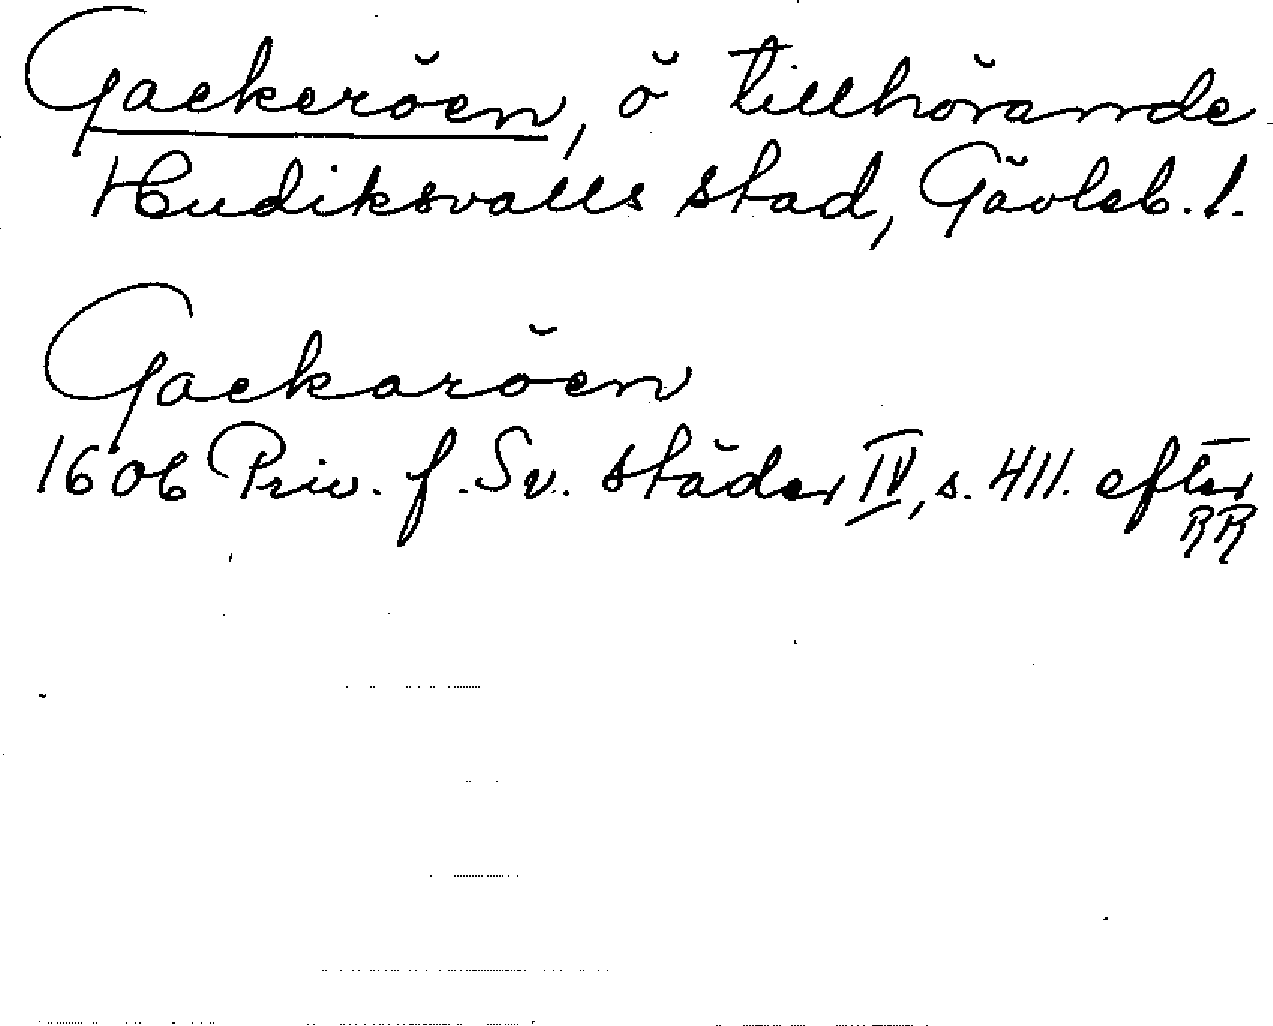 Gackeröen, ö tillhörande
Hudiksvalls stad, Gävleb. l.
Gackaröen
1606 Priv. f. Sv. städer IV, s. 411. efter
RR